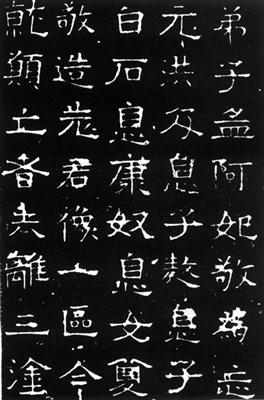 弟子孟阿妃敬為忘
元洪及息子敖息子
白石息康奴息女
敬造老君像一區今
就願亡者去離三塗